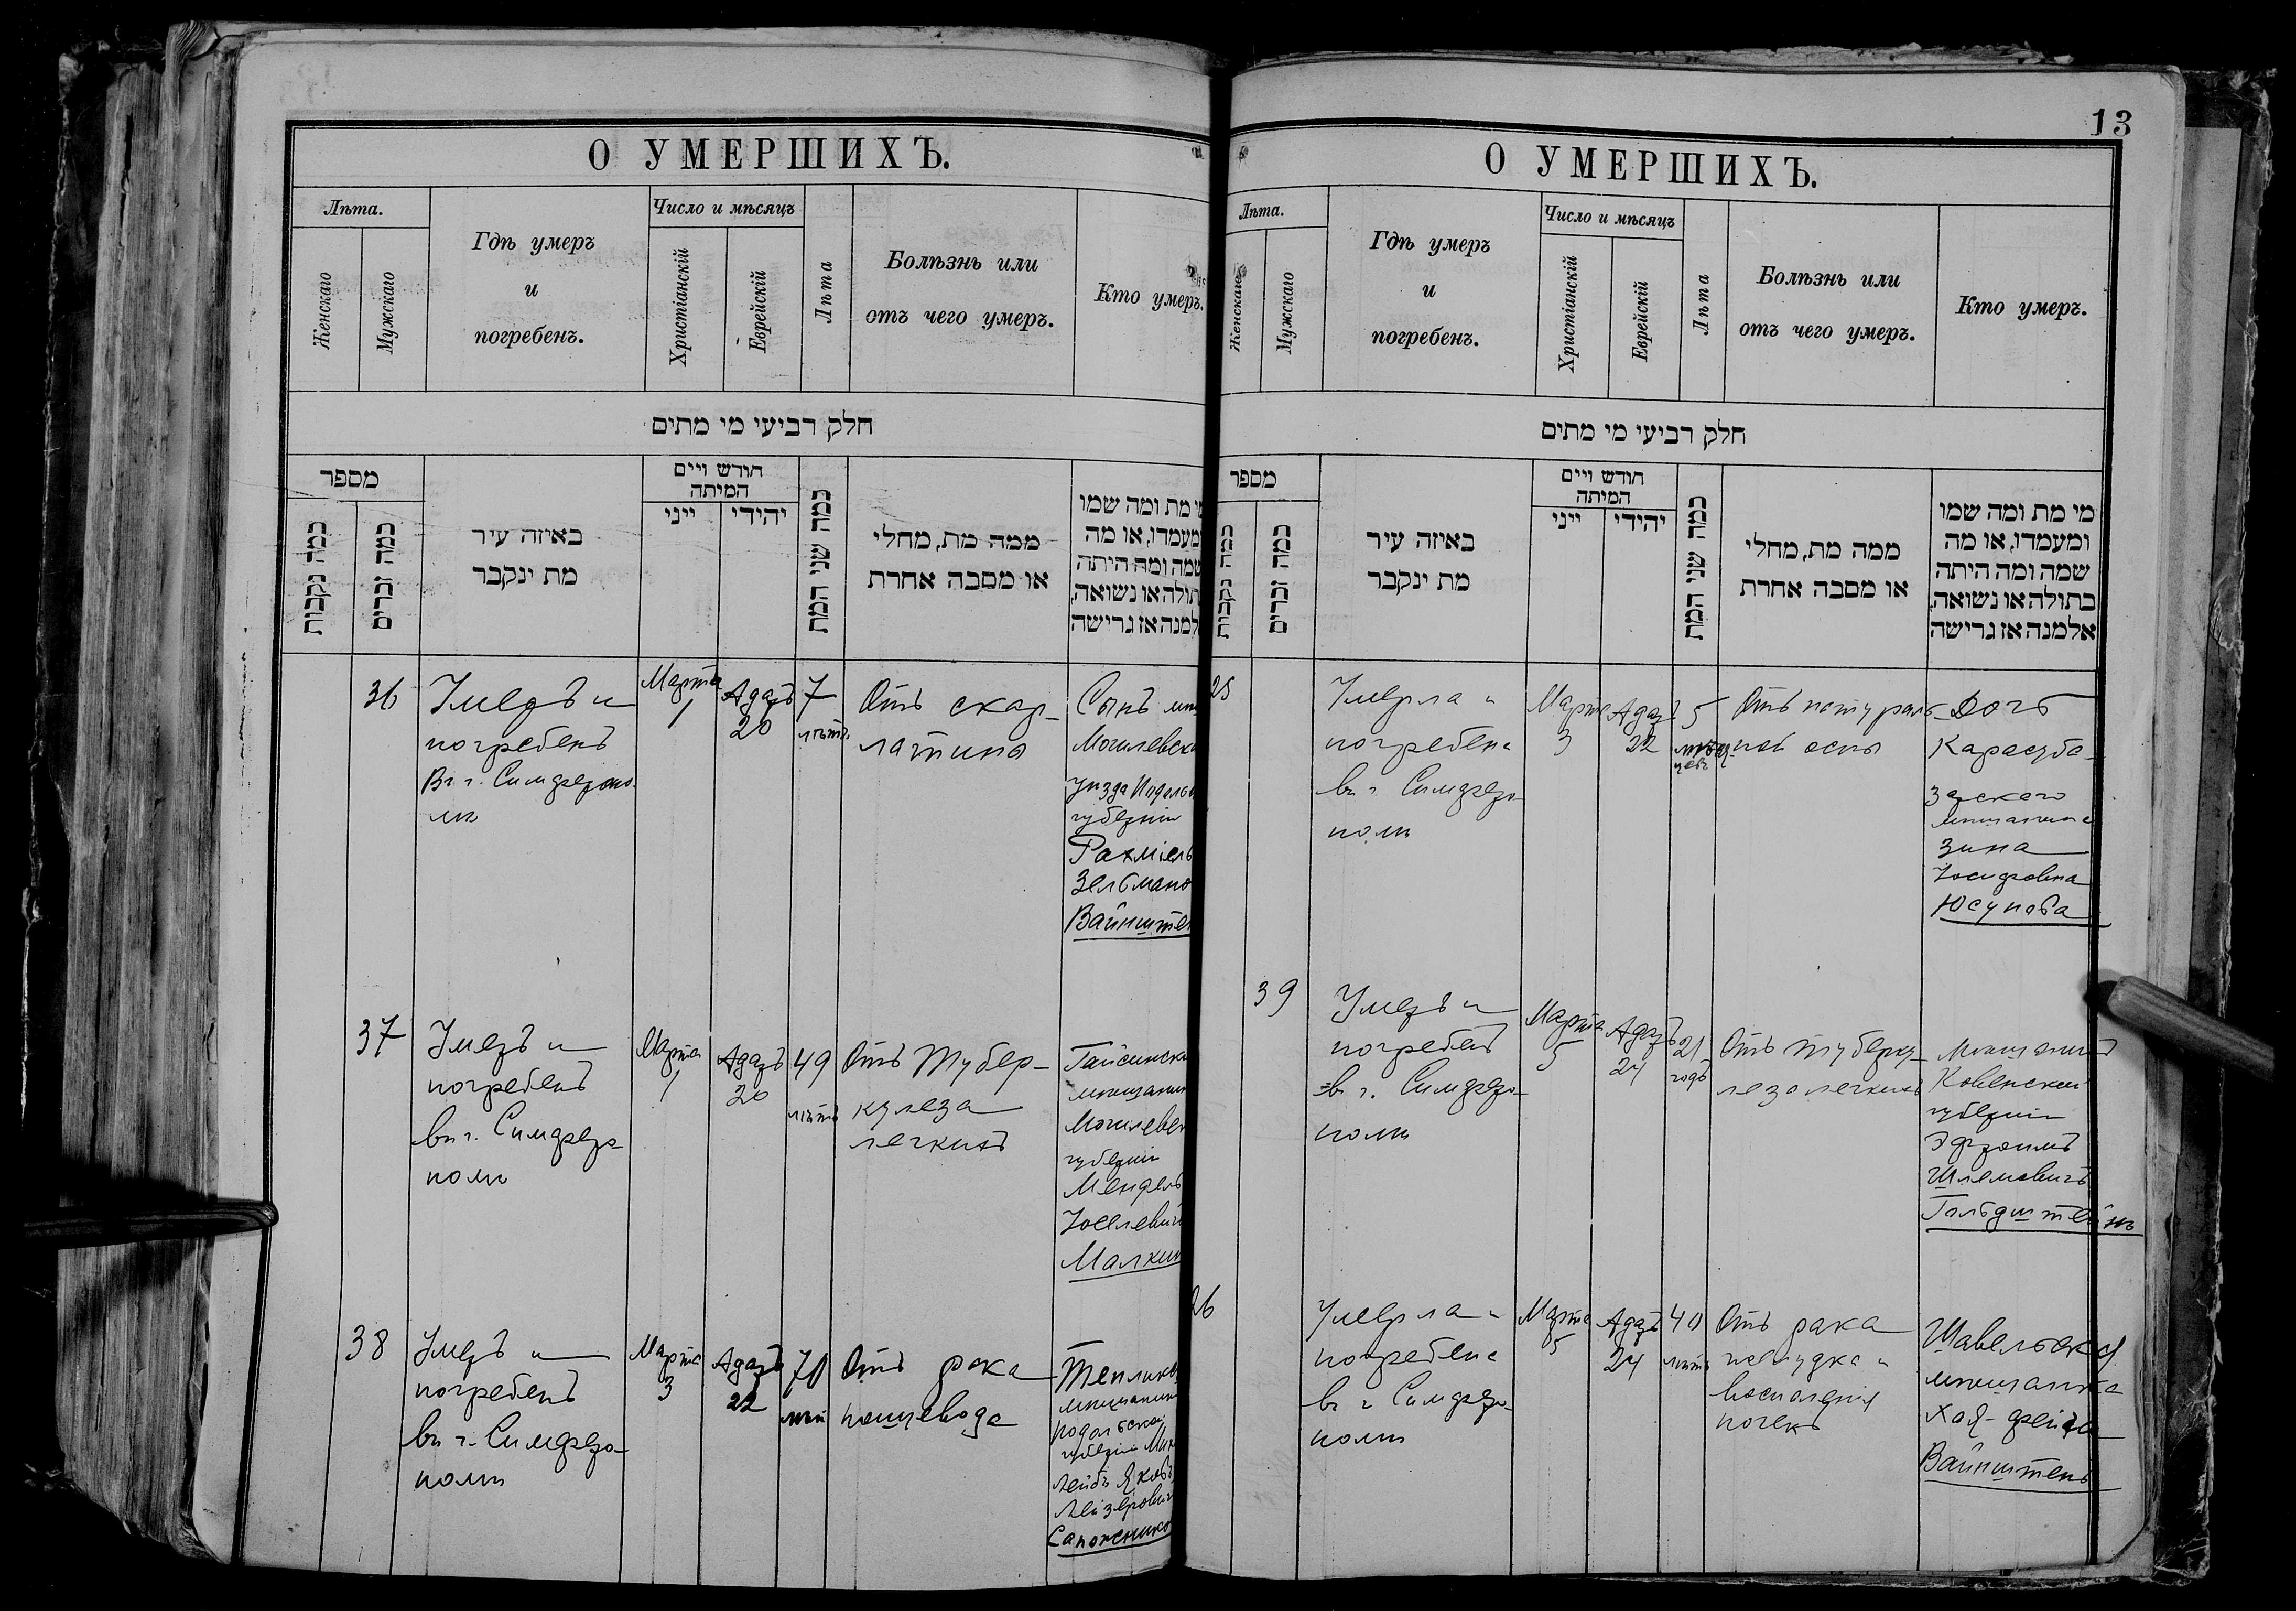 О УМЕРШИХЪ.
Лѣта.
Женскаго
Мужскаго
Гдѣ умеръ
и
погребенъ.
Число и мѣсяцъ
Христіанскій
Еврейскій
Лѣта
Болѣзнь или
отъ чего умеръ.
Кто умеръ.
חלק רביעי מי מתים
מספר
כמה נקבות
כמה זכרים
באיזה עיר
מת ינקבר
חודש ויים
המיתה
ייני
יהידי
כמה שני המת
ממה מת, מחלי
או מסבה אחרת
מי מת ומה שמו
ומעמדו, או מה
שמה ומה היתה
תולה או נשואה,
למנה אז גרישה
36
Умеръ и
погребенъ
Въ г. Симферопо-
лѣ
Марта
1
Адаръ
20
7
лѣтъ
Отъ скар-
латины
Сынъ
Могилевск
уѣзда Подольс
губерніи
Рахміель
Зельмано
Вайнште
37
Умеръ и
погребенъ
въ г. Симферо-
полѣ
Марта
1
Адаръ
20
49
лѣтъ
Отъ Тубер-
кулеза
легкихъ
Гайсинск
мѣщанин
Могилевск
губерніи
Мендель
Іоселевич
Малкин
38
Умеръ и
погребенъ
въ г. Симферо-
полѣ
Марта
3
Адаръ
22
70
лѣтъ
Отъ рака
пищевода
Теплик
мѣщанин
Подольской
губерніи
Лейбъ Яковъ
Лейзерович
Сапожнико
13
О УМЕРШИХЪ.
Лѣта.
Женскаго
Мужскаго
Гдѣ умеръ
и
погребенъ.
Число и мѣсяцъ
Христіанскій
Еврейскій
Лѣта
Болѣзнь или
отъ чего умеръ.
Кто умеръ.
חלק רביעי מי מתים
מספר
כמה נקבות
כמה זכרים
באיזה עיר
מת ינקבר
חודש ויים
המיתה
ייני
יהידי
כמה שני המת
ממה מת, מחלי
או מסבה אחרת
מי מת ומה שמו
ומעמדו, או מה
שמה ומה היתה
בתולה או נשואה,
אלמנה אז גרישה
25
Умерла и
погребена
въ г. Симферо-
полѣ
Марта
3
Адаръ
22
5
мѣся-
цевъ
Отъ натураль-
ной оспы
Дочь
Карасуба-
зарскаго
мѣщанина
Зина
Іосифовна
Юсупова
39
Умеръ и
погребенъ
въ г. Симферо-
полѣ
Марта
5
Адаръ
24
21
годъ
Отъ туберку-
леза легкихъ
Мѣщанинъ
Ковенской
губерніи
Эфроимъ
Шлемовичъ
Гольдштейнъ
26
Умерла и
погребена
въ г. Симферо-
полѣ
Марта
5
Адаръ
24
40
лѣтъ
Отъ рака
желудка и
воспаленія
почекъ
Шавельская
мѣщанка
Хая-Фейга
Вайнштенъ